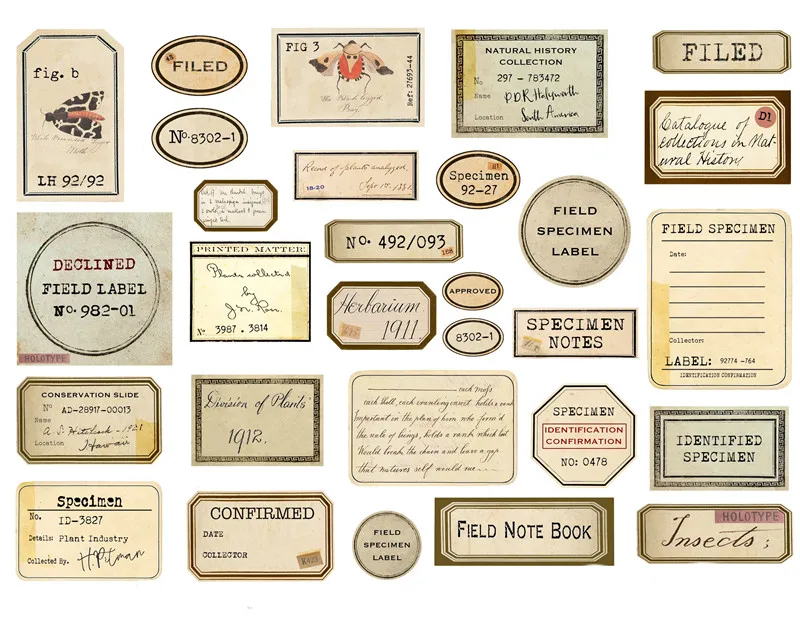 fig. b
LH 92/92
FILED
No. 8302-1
FIG 3
Ref: 27693-44
NATURAL HISTORY
COLLECTION
No 297 - 783472
Name
Location South America
FILED
D1
Catalogue of
collections in Nat-
ural History
Record of plants analyzed.
18-20
Sept 1st. 1881.
Specimen
92-27
FIELD
SPECIMEN
LABEL
No. 492/093
DECLINED
FIELD LABEL
No. 982-01
HOLOTYPE
PRINTED MATTER:
Plants collected
by
No 3987 . 3814
Herbarium
1911
APPROVED
8302-1
SPECIMEN
NOTES
FIELD SPECIMEN
Date:
Collector:
LABEL: 92774 -764
IDENTIFICATION CONFIRMATION
CONSERVATION SLIDE
No AD-28917-00013
Name A. S. Hitchcock - 1921
Location Hawaii
Division of Plants
1912.
each moss
each shell, each crawling insect holds a rank
Important in the plan of him who fram'd
the scale of beings, holds a rank which lost
Would break the chain and leave a gap
that natures self would rue
SPECIMEN
IDENTIFICATION
CONFIRMATION
NO: 0478
IDENTIFIED
SPECIMEN
Specimen
No. ID-3827
Details: Plant Industry
Collected By. H. Pitman
CONFIRMED
DATE
COLLECTOR
FIELD
SPECIMEN
LABEL
FIELD NOTE BOOK
HOLOTYPE
Insects;